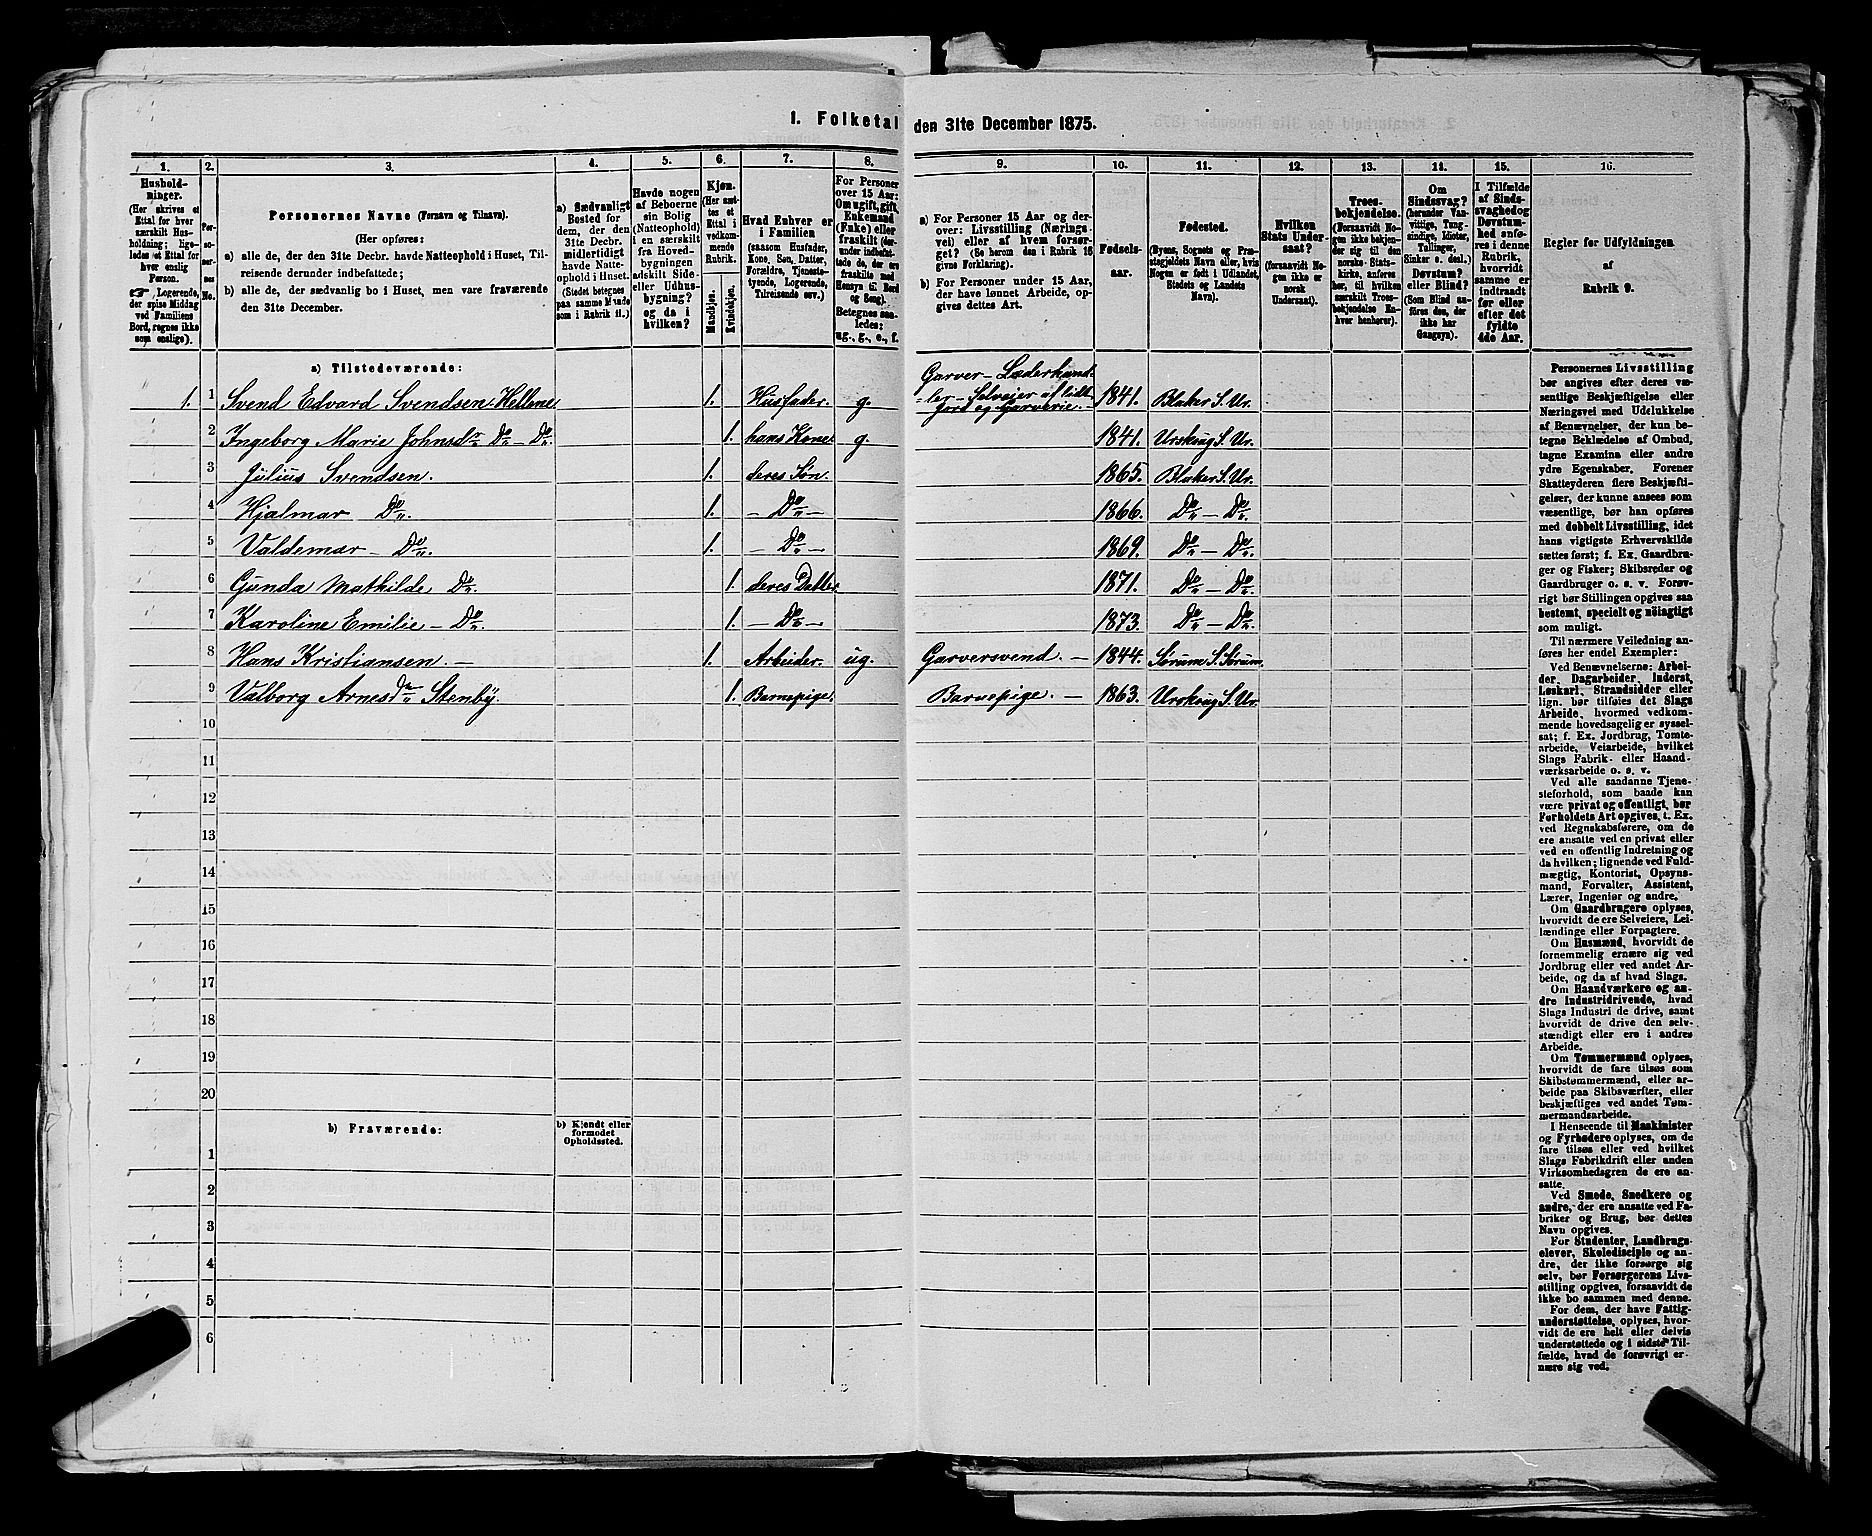 1. Folketal den 31te December 1875.
1. 2. 3. 4. 5. 6. 7. 8. 9. 10. 11. 12. 13. 14. 15. 16.
Hushold-
ninger.
(Her skrives et
Ettal for hver
særskilt Hus-
holdning; lige-
ledes et Ettal for
hver enslig
Person.
☞ Logerende,
der spise Middag
ved Familiens
Bord, regnes ikke
som enslige).
Per-
so-
ner-
nes
No.
Personernes Navne (Fornavn og Tilnavn).
(Her opføres:
a) alle de, der den 31te Decbr. havde Natteophold i Huset, Til-
reisende derunder indbefattede;
b) alle de, der sædvanlig bo i Huset, men vare fraværende
den 31te December.
a) Sædvanligt
Bosted for
dem, der den
31te Decbr.
midlertidigt
havde Natte-
ophold i Huset.
(Stedet betegnes
paa samme Maade
som i Rubrik 11.)
Havde nogen
af Beboerne
sin Bolig
(Natteophold)
i en særskilt
fra Hoved-
bygningen
adskilt Side-
eller Udhus-
bygning?
og da i
hvilken?
Kjøn.
(Her sæt-
tes et
Ettal i
vedkom-
mende
Rubrik.
Mandkjøn.
Kvindekjøn.
Hvad Enhver er
i Familien
(saasom Husfader,
Kone, Søn, Datter,
Forældre, Tjeneste-
tyende, Logerende,
Tilreisende osv.)
For Personer
over 15 Aar:
Om ugift, gift,
Enkemand
(Enke) eller
fraskilt (der-
under indbefat-
tede de, der ere
fraskilte med
Hensyn til Bord
og Seng).
Betegnes saa-
ledes:
ug., g., e., f.
a) For Personer 15 Aar og der-
over: Livsstilling (Nærings-
vei) eller af hvem forsør-
get? (Se herom den i Rubrik 16
givne Forklaring).
b) For Personer under 15 Aar,
der have lønnet Arbeide, op-
gives dettes Art.
Fødsels-
aar.
Fødested.
(Byens, Sognets og Præ-
stegjeldets Navn eller, hvis
Nogen er født i Udlandet,
Stedets og Landets
Navn).
Hvilken
Stats Under-
saat?
(forsaavidt No-
gen ikke er
norsk
Undersaat).
Troes-
bekjendelse.
(Forsaavidt No-
gen ikke bekjen-
der sig til den
norske Stats-
kirke, anføres
her, til hvilken
særskilt Troes-
bekjendelse En-
hver henhører).
Om
Sindssvag?
(herunder Van-
vittige, Tung-
sindige, Idioter,
Tullinger,
Sinker o. desl.)
Døvstum?
eller Blind?
(Som Blind an-
føres den, der
ikke har
Gangsyn).
I Tilfælde
af Sinds-
svaghed og
Døvstum-
hed anfø-
res i denne
Rubrik,
hvorvidt
samme er
indtraadt
før eller
efter det
fyldte
4de Aar.
Regler for Udfyldningen
af
Rubrik 9.
a) Tilstedeværende:
1. 1 Svend Edvard Svendsen Hellene 1. Husfader. g. Garver-Læderhand-
ler-Selveier af lidt
Jord og Garverie.- 1841. Blaker S. Ur.
2 Ingeborg Marie Johnsdr. Do - Do. 1. hans Kone. g. 1841. Urskoug S. Ur.
3 Julius Svendsen. 1. deres Søn. 1865. Blaker S. Ur.
4 Hjalmar Do. 1. - Do - 1866. Do - Do.
5 Valdemar - Do. 1. - Do - 1869. Do - Do.
6 Gunda Mathilde Do. 1. deres Datter. 1871. Do - Do.
7 Karoline Emilie - Do. 1. - Do - 1873. Do - Do.
8 Hans Kristiansen. - 1. Arbeider. ug. Garversvend. - 1844. Sørum S. Sørum.
9 Valborg Arnesdr. Stenby. 1. Barnepige. Barnepige. - 1863. Urskoug S. Ur.
10
11
12
13
14
15
16
17
18
19
20
b) Fraværende: b) Kjendt eller
formodet
Opholdssted.
1
2
3
4
5
6
Personernes Livsstilling
bør angives efter deres væ-
sentlige Beskjæftigelse eller
Næringsvei med Udelukkelse
af Benævnelser, der kun be-
tegne Beklædelse af Ombud,
tagne Examina eller andre
ydre Egenskaber. Forener
Skatteyderen flere Beskjæfti-
gelser, der kunne ansees som
væsentlige, bør han opføres
med dobbelt Livsstilling, idet
hans vigtigste Erhvervskilde
sættes først; f. Ex. Gaardbru-
ger og Fisker; Skibsreder og
Gaardbruger o. s. v. Forøv-
rigt bør Stillingen opgives saa
bestemt, specielt og nöiagtigt
som muligt.
Til nærmere Veiledning an-
føres her endel Exempler:
Ved Benævnelserne: Arbei-
der, Dagarbeider, Inderst,
Løskarl, Strandsidder eller
lign. bør tilføies det Slags
Arbeide, hvormed vedkom-
mende hovedsagelig er syssel-
sat; f. Ex. Jordbrug, Tomte-
arbeide, Veiarbeide, hvilket
Slags Fabrik- eller Haand-
værksarbeide o. s. v.
Ved alle saadanne Tjene-
steforhold, som baade kan
være privat og offentligt, bør
Forholdets Art opgives, t. Ex.
ved Regnskabsførere, om de
ere ansatte ved en privat eller
ved en offentlig Indretning og
da hvilken; lignende ved Fuld-
mægtig, Kontorist, Opsyns-
mand, Forvalter, Assistent,
Lærer, Ingeniør og andre.
Om Gaardbrugere oplyses,
hvorvidt de ere Selveiere, Lei-
lændinge eller Forpagtere.
Om Husmænd, hvorvidt de
fornemmelig ernære sig ved
Jordbrug eller ved andet Ar-
beide, og da af hvad Slags.
Om Haandværkere og an-
dre Industridrivende, hvad
Slags Industri de drive, samt
hvorvidt de drive den selv-
stændigt eller ere i andres
Arbeide.
Om Tømmermænd oplyses,
hvorvidt de fare tilsøs som
Skibstømmermænd, eller ar-
beide paa Skibsværfter, eller
beskjæftiges ved andet Tøm-
mermandsarbeide.
I Henseende til Maskinister
og Fyrbødere oplyses, om de
fare tilsøs eller ved hvilket
Slags Fabrikdrift eller anden
Virksomhedsgren de ere an-
satte.
Ved Smede, Snedkere og
andre, der ere ansatte ved Fa-
briker og Brug, bør dettes
Navn opgives.
For Studenter, Landbrugs-
elever, Skoledisciple og an-
dre, der ikke forsørge sig
selv, bør Forsørgerens Livs-
stilling opgives, forsaavidt de
ikke bo sammen med denne.
For dem, der have Fattig-
understøttelse, oplyses, hvor-
vidt de ere helt eller delvis
understøttede og i sidste Til-
fælde, hvad de forøvrigt er-
nære sig ved.